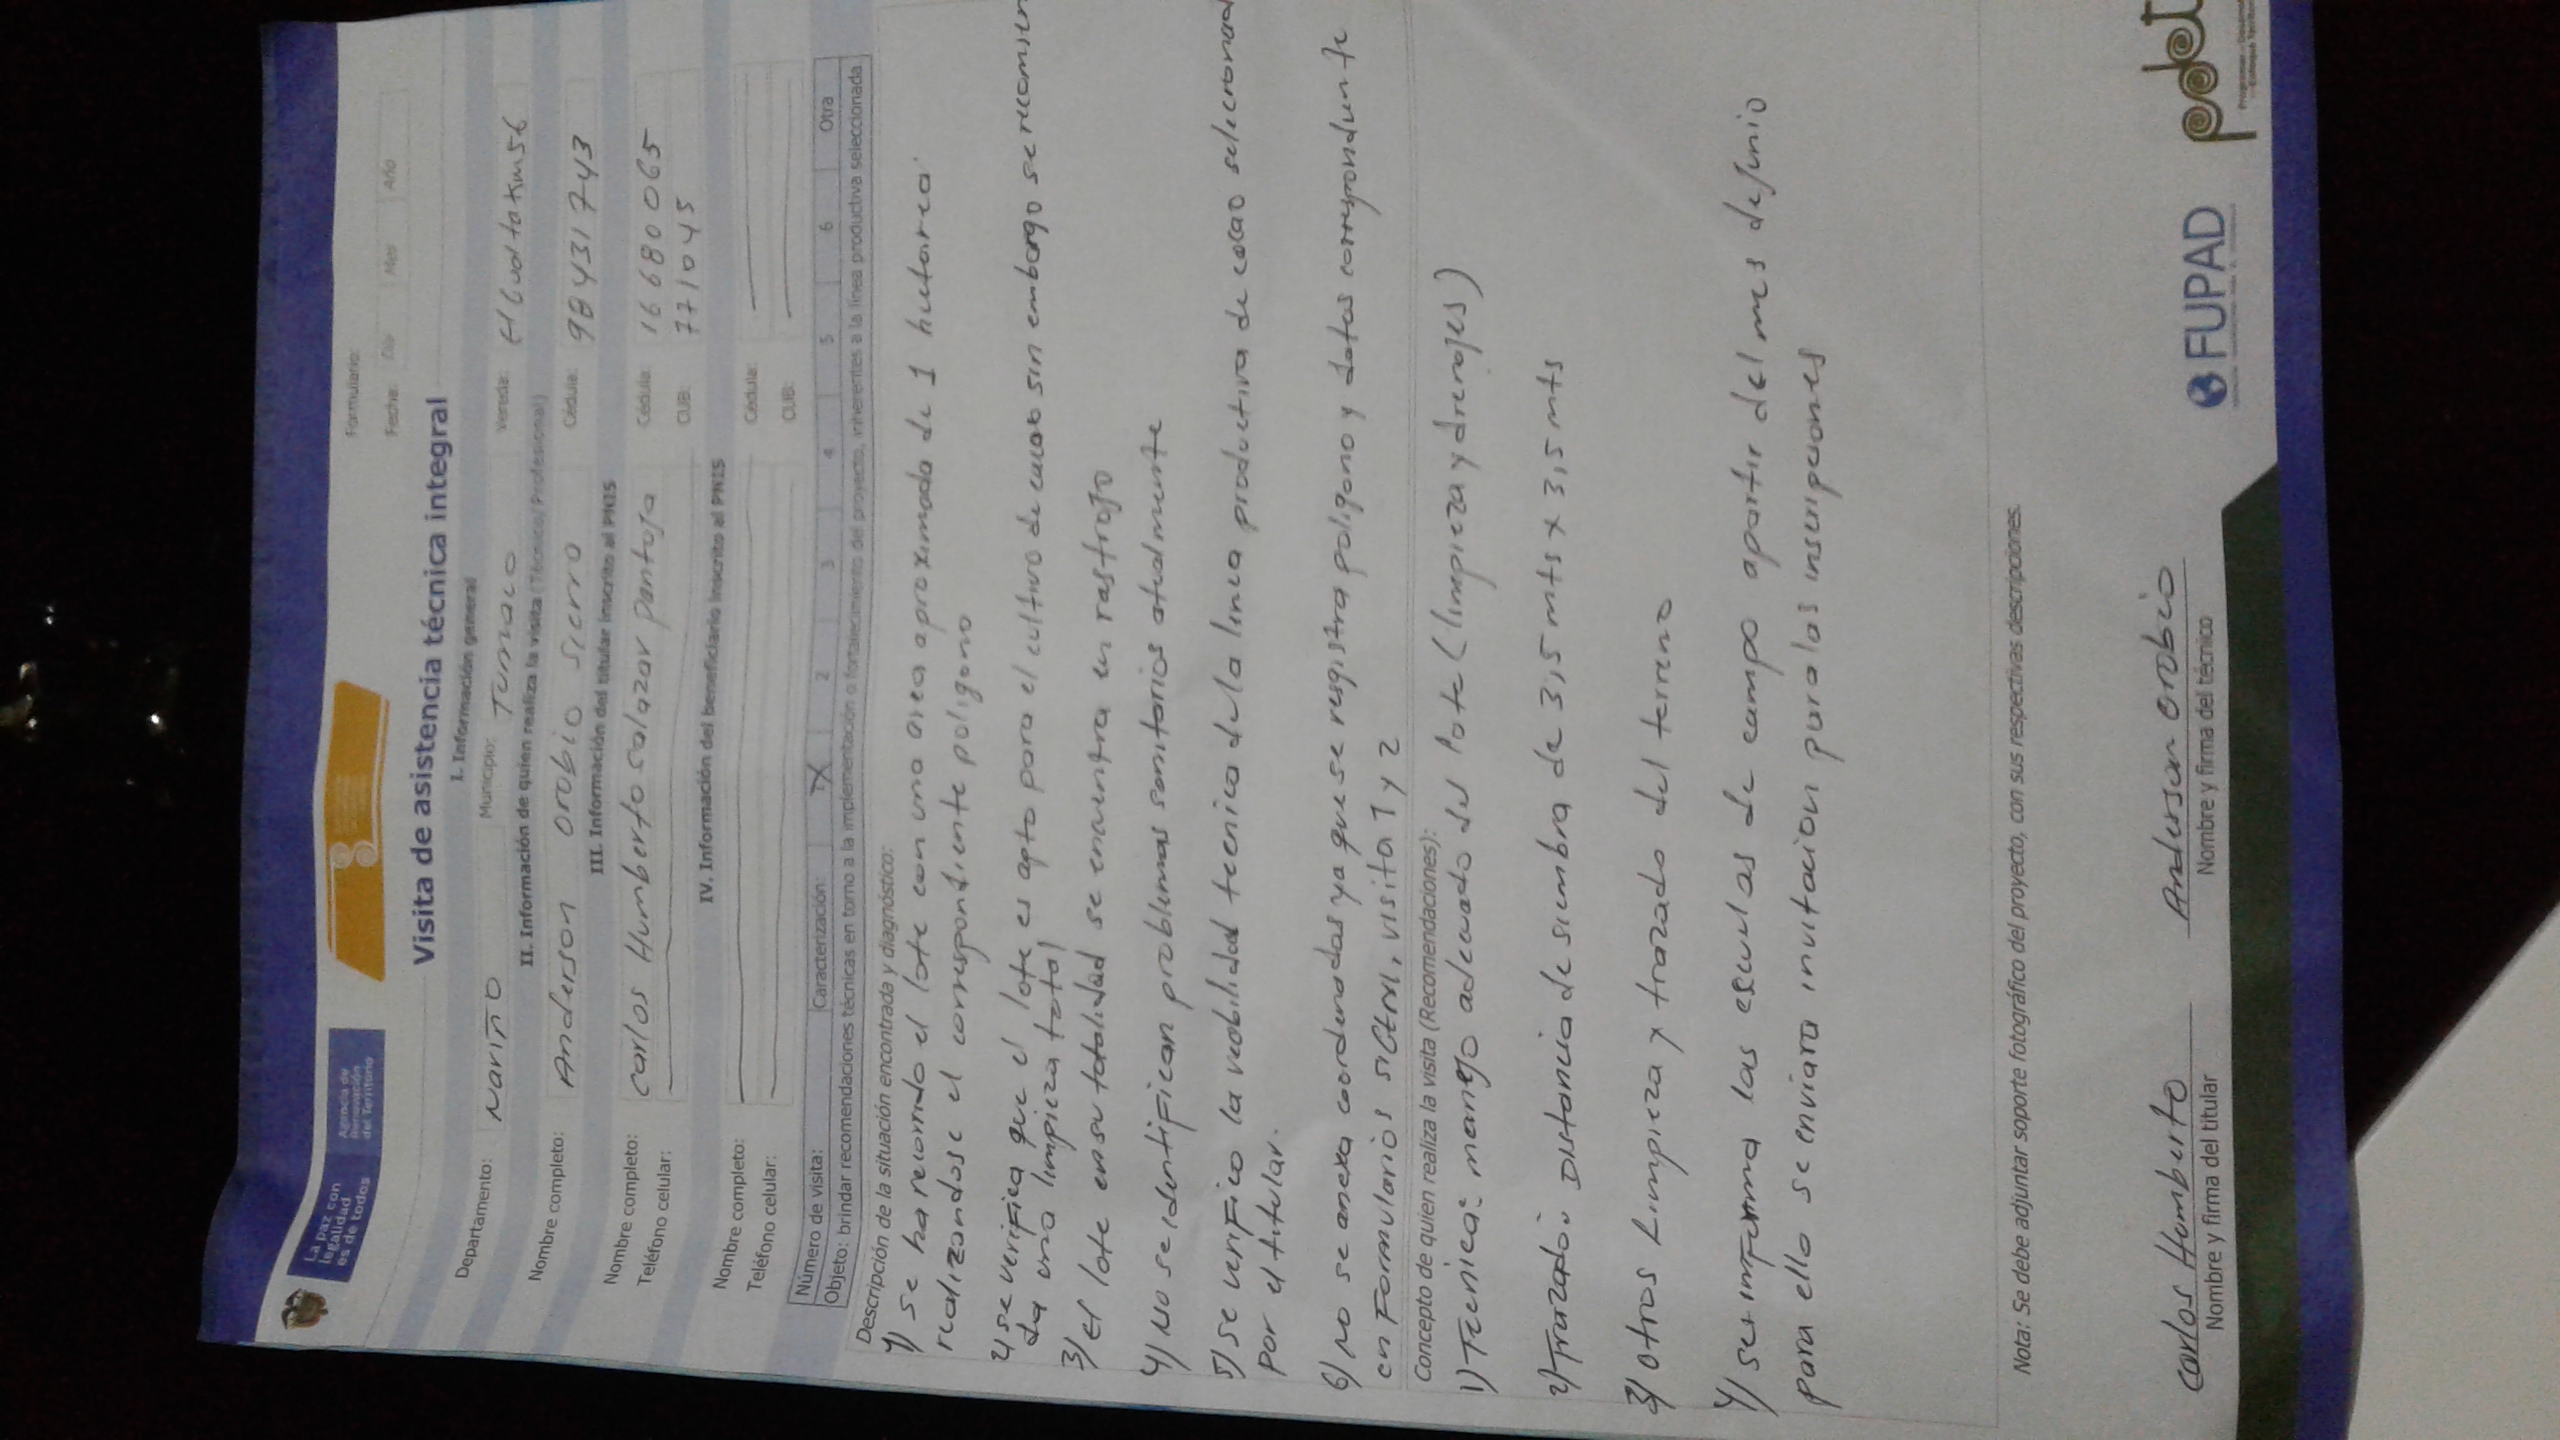 La paz con
legalidad
es de todos
Agencia de
Renovación
del Territorio
Formulario:
Fecha: Día Mes Año
Visita de asistencia técnica integral
I. Información general
Departamento: Nariño Municipio: Tumaco Vereda:
II. Información de quien realiza la visita (Técnico/Profesional)
Nombre completo: Anderson orobio sierra Cédula: 98431743
III. Información del titular inscrito al PNIS
Nombre completo: carlos Humberto salazar pantoja Cédula: 16680065
Teléfono celular: CUB: 771045
IV. Información del beneficiario inscrito al PNIS
Nombre completo: Cédula:
Teléfono celular: CUB:
Número de visita: Caracterización: X 2 3 4 5 6 Otra
Objeto: brindar recomendaciones técnicas en torno a la implementación o fortalecimiento del proyecto, inherentes a la línea productiva seleccionada
Descripción de la situación encontrada y diagnóstico:
1) se ha recorrido el lote con una area aproximada de 1 hectarea.
realizandose el correspondiente poligono
2) se verifica que el lote es apto para el cultivo de cacao sin embargo se recomien
da una limpieza total
3) el lote en su totalidad se encuentra en rastrojo
4) No se identifican problemas sanitarios atualmente
5) se verifico la viabilidad tecnica de la linea productiva de cacao selecionad
por el titular.
6) no se anexa coordenadas ya que se registra poligono y datos correspondiente
en Formularios, visita 1 y 2
Concepto de quien realiza la visita (Recomendaciones):
1) Tecnica: manejo adecuado del lote (limpieza y drenajes)
2) Trazado: Distancia de siembra de 3,5 mts x 3,5 mts
3) otros Limpieza y trazado del terreno
4) se informa las escuelas de campo apartir del mes de junio
para ello se enviara invitacion para las inscripciones
Nota: Se debe adjuntar soporte fotográfico del proyecto, con sus respectivas descripciones.
carlos Humberto Anderson orobio
Nombre y firma del titular Nombre y firma del técnico
FUPAD
pdet